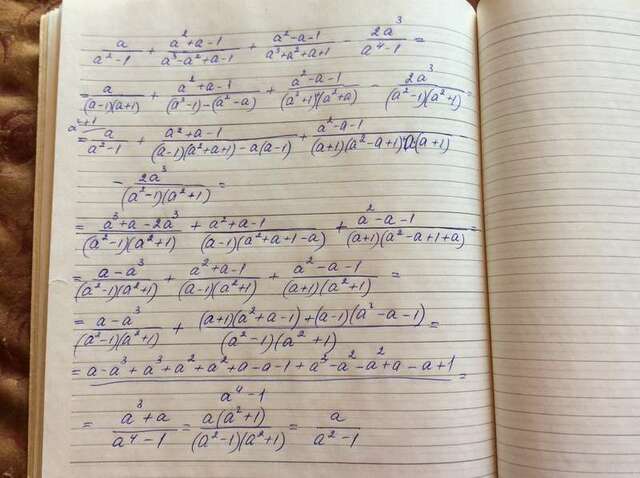 a/(a²-1) + (a²+a-1)/(a³-a²+a-1) + (a²-a-1)/(a³+a²+a+1) - 2a³/(a⁴-1) =
= a/((a-1)(a+1)) + (a²+a-1)/((a³-1)-(a²-a)) + (a²-a-1)/((a³+1)+(a²+a)) - 2a³/((a²-1)(a²+1)) =
a²+1
= a/(a²-1) + (a²+a-1)/((a-1)(a²+a+1)-a(a-1)) + (a²-a-1)/((a+1)(a²-a+1)+a(a+1))
- 2a³/((a²-1)(a²+1)) =
= (a³+a-2a³)/((a²-1)(a²+1)) + (a²+a-1)/((a-1)(a²+a+1-a)) + (a²-a-1)/((a+1)(a²-a+1+a)) =
= (a-a³)/((a²-1)(a²+1)) + (a²+a-1)/((a-1)(a²+1)) + (a²-a-1)/((a+1)(a²+1)) =
= (a-a³)/((a²-1)(a²+1)) + ((a+1)(a²+a-1)+(a-1)(a²-a-1))/((a²-1)(a²+1)) =
= (a-a³+a³+a²+a²+a-a-1+a³-a²-a²+a-a+1)/(a⁴-1) =
= (a³+a)/(a⁴-1) = a(a²+1)/((a²-1)(a²+1)) = a/(a²-1)